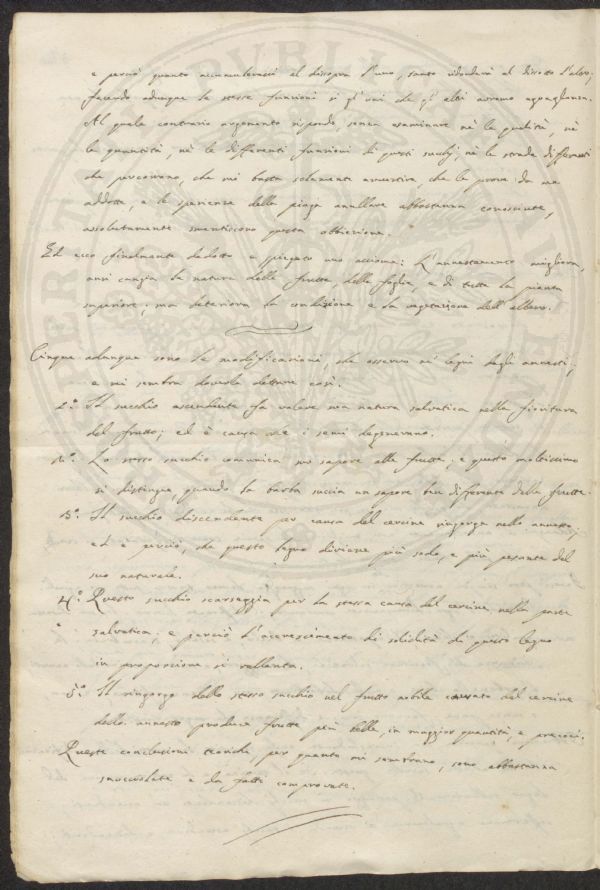 e perciò quanto accumulerassi al dissopra l'uno, tanto ridonderà al dissotto l'altro;
facendo adunque le stesse funzioni sì gl'uni che gl'altri avremo uguaglianza.
Al quale contrario argomento rispondo, senza esaminare nè la qualità, nè
la quantità, nè le differenti funzioni di questi succhj, nè le strade differenti
che percorrono, che mi basta solamente avvertire che le prove da me
addotte, e le sperienze della piaga anullare abbastanza conosciute,
assolutamente smentiscono questa obbiezione.
Ed ecco finalmente dedotto e spiegato uno assioma: L'annestamento migliora,
anzi cangia la natura delle frutta, delle foglie, e di tutta la pianta
superiore; ma deteriora la condizione e la vegetazione dell'albero.
Cinque adunque sono le modificazioni che osservo ne' legni degli annesti;
e mi sembra doverle dettare così.
1.° Il succhio ascendente fa valere sua natura salvatica nella fioritura
del frutto; ed è causa che i semi degenerano.
2.° Lo stesso succhio comunica suo sapore alle frutta: e questo moltissimo
si distingue quando la barba succia un sapore ben differente delle frutta.
3.° Il succhio discendente per causa del cercine ringorga nello annesto;
ed è perciò, che questo legno diviene più sodo, e più pesante del
suo naturale.
4.° Questo succhio scarseggia per la stessa causa del cercine, nella parte
salvatica; e perciò l'accrescimento di solidità di questo legno
in proporzione si rallenta.
5.° Il ringorgo dello stesso succhio nel frutto nobile causato dal cercine
dello annesto produce frutta più belle, in maggior quantità, e precoci.
Queste conclusioni teoriche per quanto mi sembrano, sono abbastanza
snocciolate e da fatti comprovate.